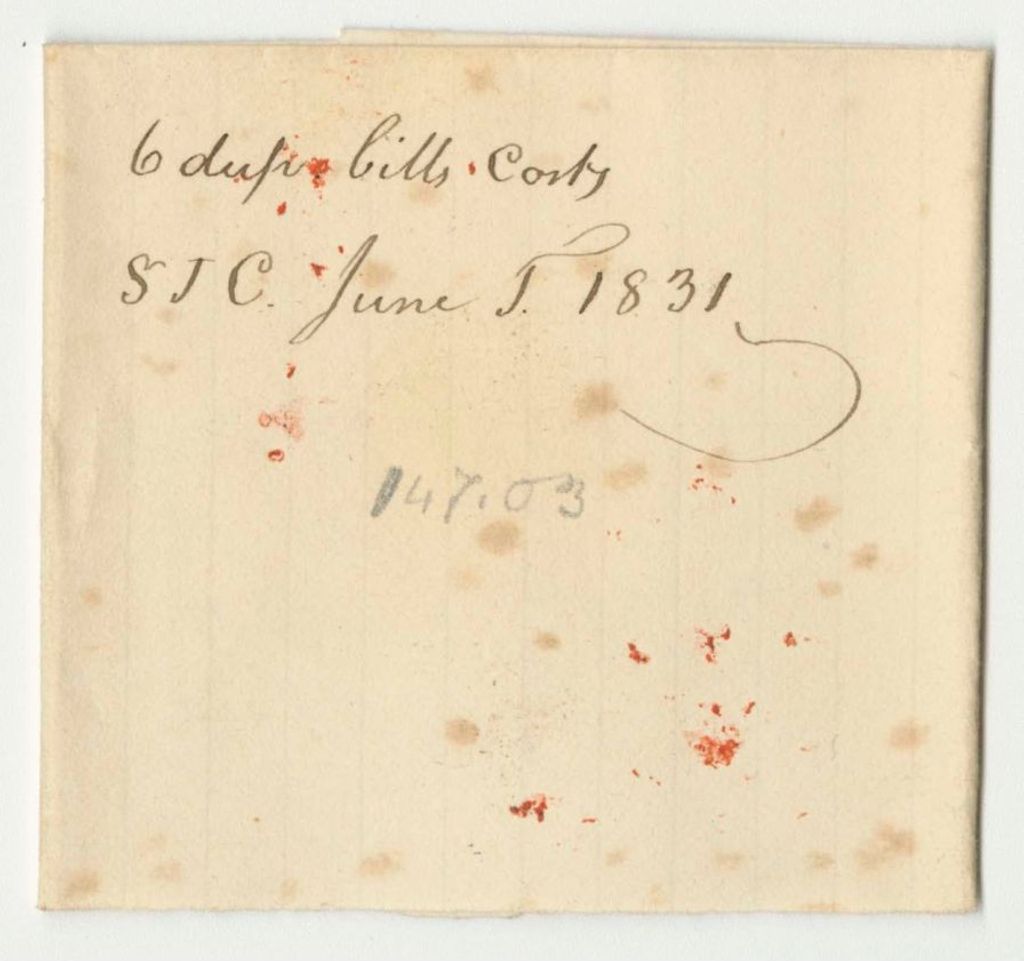 6 dupr. bills Costs
SJC. June T. 1831
147.03